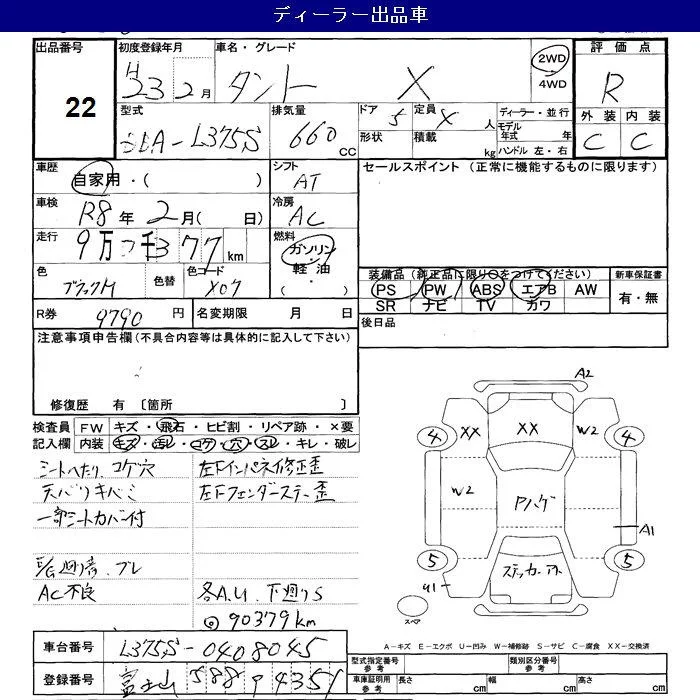 ディーラー出品車
出品番号
22
初度登録年月
H23年2月
車名・グレード
タント X
2WD
4WD
評価点
R
外装 内装
C C
型式
DBA-L375S
排気量
660cc
ドア 5
定員 人
形状
積載 kg
ディーラー・並行
モデル年式 年
ハンドル 左・右
車歴
自家用・( )
シフト
AT
セールスポイント (正常に機能するものに限ります)
車検
R8年2月( 日)
冷房
AC
走行
km
燃料
ガソリン
軽油
( ・ )
色
ブラックM
色替
色コード
X07
装備品(純正品に限り○をつけてください)
PS PW ABS エアB AW
SR ナビ TV カワ
新車保証書
有・無
R券 9790円
名変期限 月 日
後日品
注意事項申告欄(不具合内容等は具体的に記入して下さい)
修復歴 有 〔箇所 〕
検査員記入欄
FW キズ・飛石・ヒビ割・リペア跡・×要
内装 キズ・汚レ・コゲ・穴・スレ・キレ・破レ
シートへたり、コゲ穴
天バリキバミ
一部シートカバー付
AC不良
左Fインパネ修正歪
左Fフェンダーステー歪
各A.U 下廻りS
◎90379km
A2
4 XX XX W2 4
W2
Pハゲ
A1
5 5
U1
スペア
車台番号 L375S-0408045
登録番号 富士山 588 9 4351
A-キズ E-エクボ U-凹み W-補修跡 S-サビ C-腐食 XX-交換済
型式指定番号 参考
類別区分番号 参考
車庫証明用 参考
長さ cm 幅 cm 高さ cm